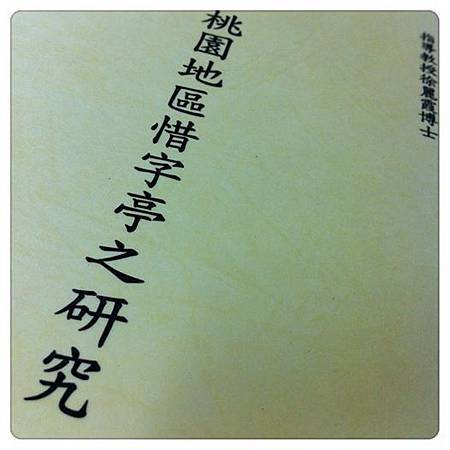 指導教授徐麗霞博士
桃園地區惜字亭之研究